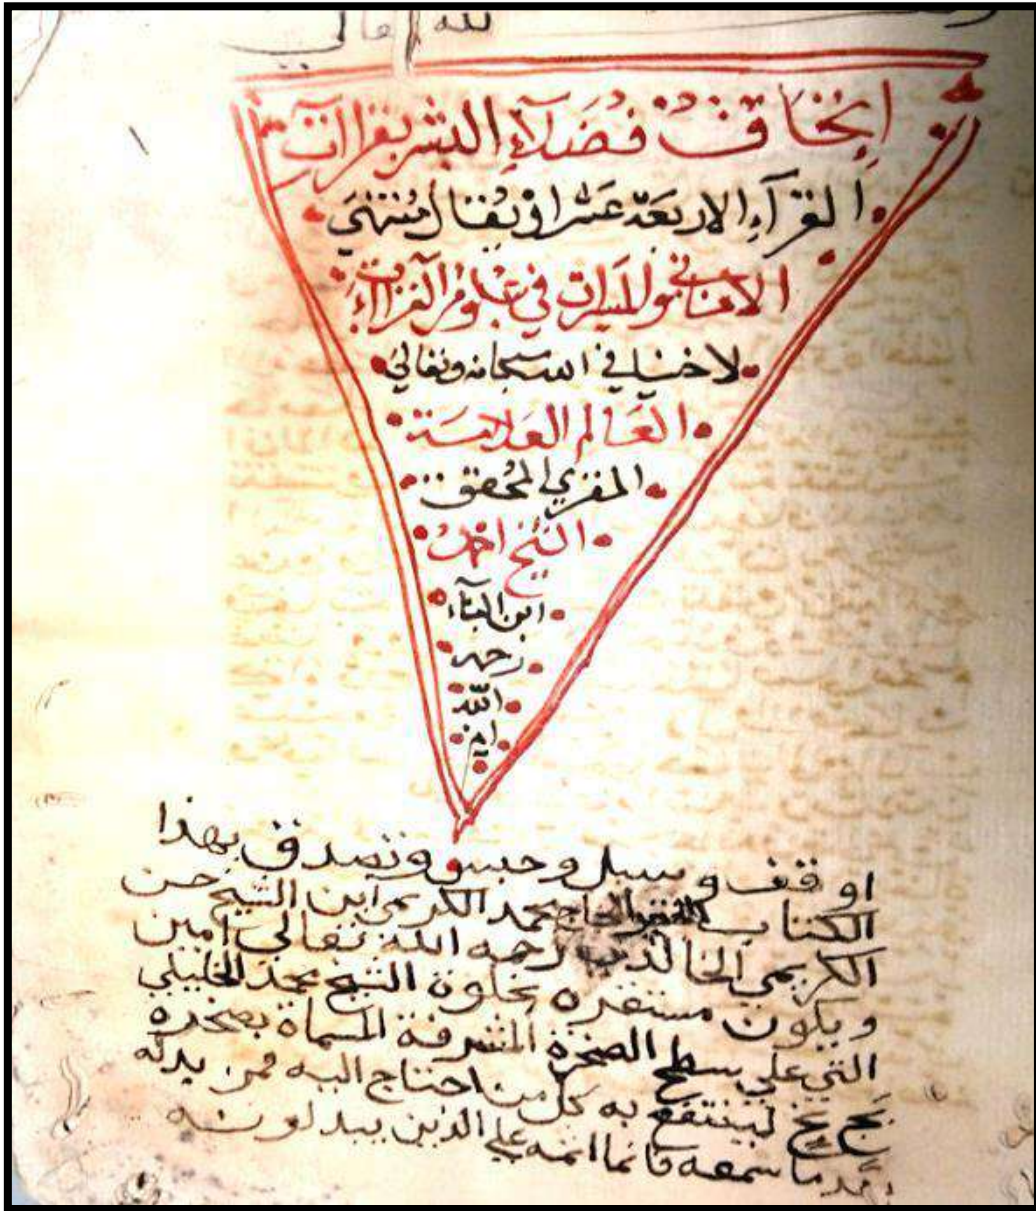 لله تعالى
اتحاف فضلآء البشر بقراآت
القرآء الاربعة عشر او يقال منتهي
الاماني والمسرات في علوم القراآت
لاخينا في الله سبحانه وتعالي
العالم العلامة
المقري المحقق
الشيخ احمد
ابن البنآء
رحمه
الله
امين
اوقف وسبل وحبس وتصدق بهذا
الكتاب الفقير الحاج محمد الكريمي ابن الشيخ حسن
الكريمي الخالدي رحمه الله تعالي امين
ويكون مستقره بخلوة الشيخ محمد الخليلي
التي علي سطح الصخرة المشرفة المسماة بصخرة
بخ بخ لينتفع به كل من احتاج اليه فمن بدله
بعد ما سمعه فانما اثمه علي الذين يبدلونه